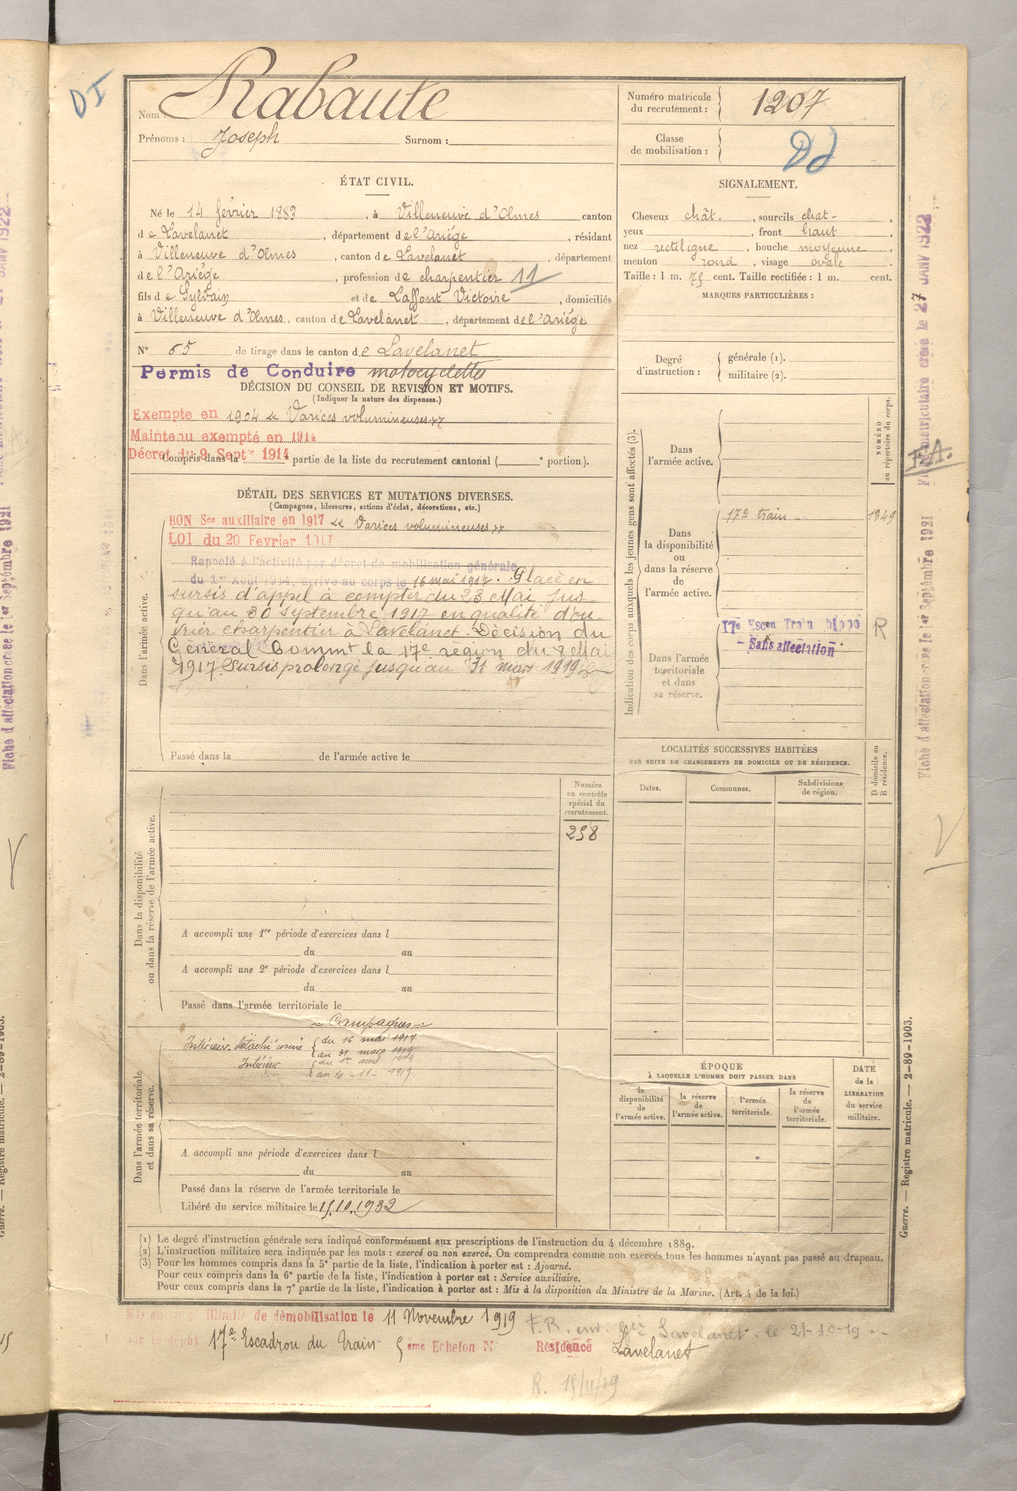 DI
Nom : Rabaute
Prénoms : Joseph Surnom :
Numéro matricule du recrutement : 1207
Classe de mobilisation :
ÉTAT CIVIL.
Né le 14 février 1883, à Villeneuve d'Olmes canton
de Lavelanet, département de l'Ariége, résidant
à Villeneuve d'Olmes, canton de Lavelanet, département
de l'Ariége, profession de charpentier 11
fils de Sylvain et de Laffont Victoire, domiciliés
à Villeneuve d'Olmes, canton de Lavelanet, département de l'Ariége
N° 65 de tirage dans le canton de Lavelanet
Permis de Conduire motocyclettes
SIGNALEMENT.
Cheveux chât., sourcils chat.,
yeux , front haut,
nez rectiligne, bouche moyenne,
menton rond, visage ovale.
Taille : 1 m. 75 cent. Taille rectifiée : 1 m. cent.
MARQUES PARTICULIÈRES :
Degré d'instruction : générale (1). militaire (2).
DÉCISION DU CONSEIL DE REVISION ET MOTIFS.
(Indiquer la nature des dispenses.)
Exempté en 1904 « Varices volumineuses »
Maintenu exempté en 1914
Décret du 9 Sept^re 1914
Compris dans la ° partie de la liste du recrutement cantonal ( ° portion).
DÉTAIL DES SERVICES ET MUTATIONS DIVERSES.
(Campagnes, blessures, actions d'éclat, décorations, etc.)
Dans l'armée active.
BON Sce auxiliaire en 1917 « Varices volumineuses »
LOI du 20 Fevrier 1917
Rappelé à l'activité par décret de mobilisation générale
du 1er Août 1914, arrivé au corps le 16 mai 1917. Placé en
sursis d'appel à compter du 23 Mai jus
qu'au 30 septembre 1917 en qualité d'ou
vrier charpentier à Lavelanet. Décision du
Général Commt la 17e région du 8 Mai
1917. Sursis prolongé jusqu'au 31 mars 1919
Passé dans la de l'armée active le
Indication des corps auxquels les jeunes gens sont affectés (3).
NUMÉRO au répertoire du corps.
Dans l'armée active.
Dans la disponibilité ou dans la réserve de l'armée active.
17e train 1349
17e Escon Train
Sans affectation
R
Dans l'armée territoriale et dans sa réserve.
LOCALITÉS SUCCESSIVES HABITÉES
PAR SUITE DE CHANGEMENTS DE DOMICILE OU DE RÉSIDENCE.
Dates. Communes. Subdivisions de région. D domicile ou R résidence.
Numéro au contrôle spécial du recrutement.
258
Dans la disponibilité ou dans la réserve de l'armée active.
A accompli une 1re période d'exercices dans l
du au
A accompli une 2e période d'exercices dans l
du au
Passé dans l'armée territoriale le
Dans l'armée territoriale et dans sa réserve.
Campagnes
Intérieur. détaché usine du 16 mai 1917
au 31 mars 1919
Intérieur du 1er avril 1919
au 11 - 11 - 1919
A accompli une période d'exercices dans l
du au
Passé dans la réserve de l'armée territoriale le
Libéré du service militaire le 15.10.1932
ÉPOQUE
À LAQUELLE L'HOMME DOIT PASSER DANS
la disponibilité de l'armée active.
la réserve de l'armée active.
l'armée territoriale.
la réserve de l'armée territoriale.
DATE de la LIBÉRATION du service militaire.
(1) Le degré d'instruction générale sera indiqué conformément aux prescriptions de l'instruction du 4 décembre 1889.
(2) L'instruction militaire sera indiquée par les mots : exercé ou non exercé. On comprendra comme non exercés tous les hommes n'ayant pas passé au drapeau.
(3) Pour les hommes compris dans la 5e partie de la liste, l'indication à porter est : Ajourné.
Pour ceux compris dans la 6e partie de la liste, l'indication à porter est : Service auxiliaire.
Pour ceux compris dans la 7e partie de la liste, l'indication à porter est : Mis à la disposition du Ministre de la Marine. (Art. 4 de la loi.)
Mis en congé illimité de démobilisation le 11 Novembre 1919
par le dépôt 17e Escadron du Train 5eme Echelon N° Résidence Lavelanet
Lavelanet le 21-10-19
R. 15/11/19
Guerre. — Registre matricule. — 2-89-1903.
Fiche matriculaire créée le 27 JANV 1922
F.A.
Fiche d'affectation créée le 1er Septembre 1921